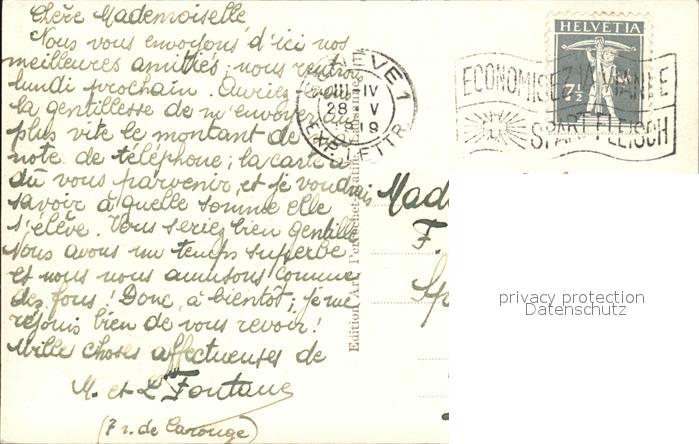 Chère Mademoiselle
Nous vous envoyons d'ici nos
meilleures amitiés; nous rentrons
lundi prochain. Auriez-vous
la gentillesse de m'envoyer au
plus vite le montant de
note de téléphone; la carte a
dû vous parvenir, et je voudrais
savoir à quelle somme elle
s'élève. Vous seriez bien gentille.
Nous avons un temps superbe
et nous nous amusons comme
des fous! Donc, à bientôt; je me
réjouis bien de vous revoir!
Mille choses affectueuses de
M. et L. Fontane
(7 r. de Carouge)
Edition Art.
GENÈVE 1
III-IV
28 V
1919
EXP. LETTR.
HELVETIA
7½
ECONOMISEZ LA VIANDE
SPART FLEISCH
Mad
F.
privacy protection
Datenschutz